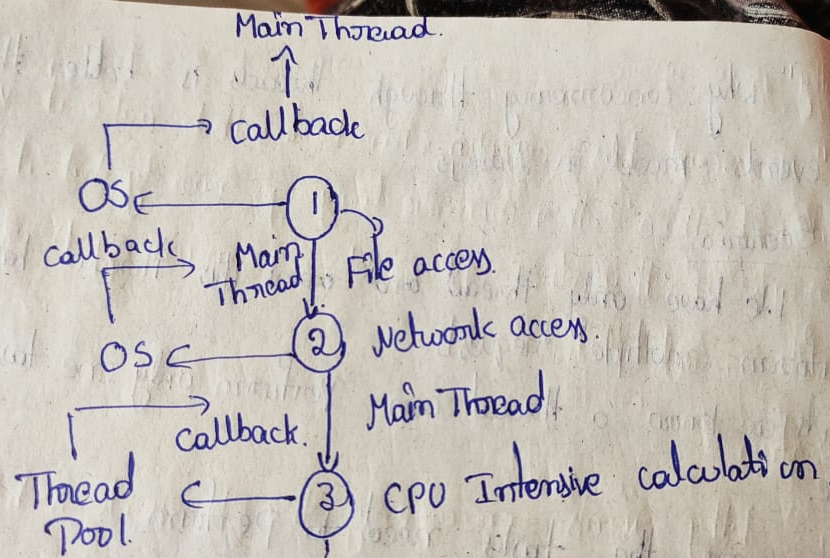 Main Thread.
Callback
OS
1
callback
Main
Thread
File access.
OS
2
Network access.
Main Thread
Callback.
Thread
Pool.
3
CPU Intensive calculation